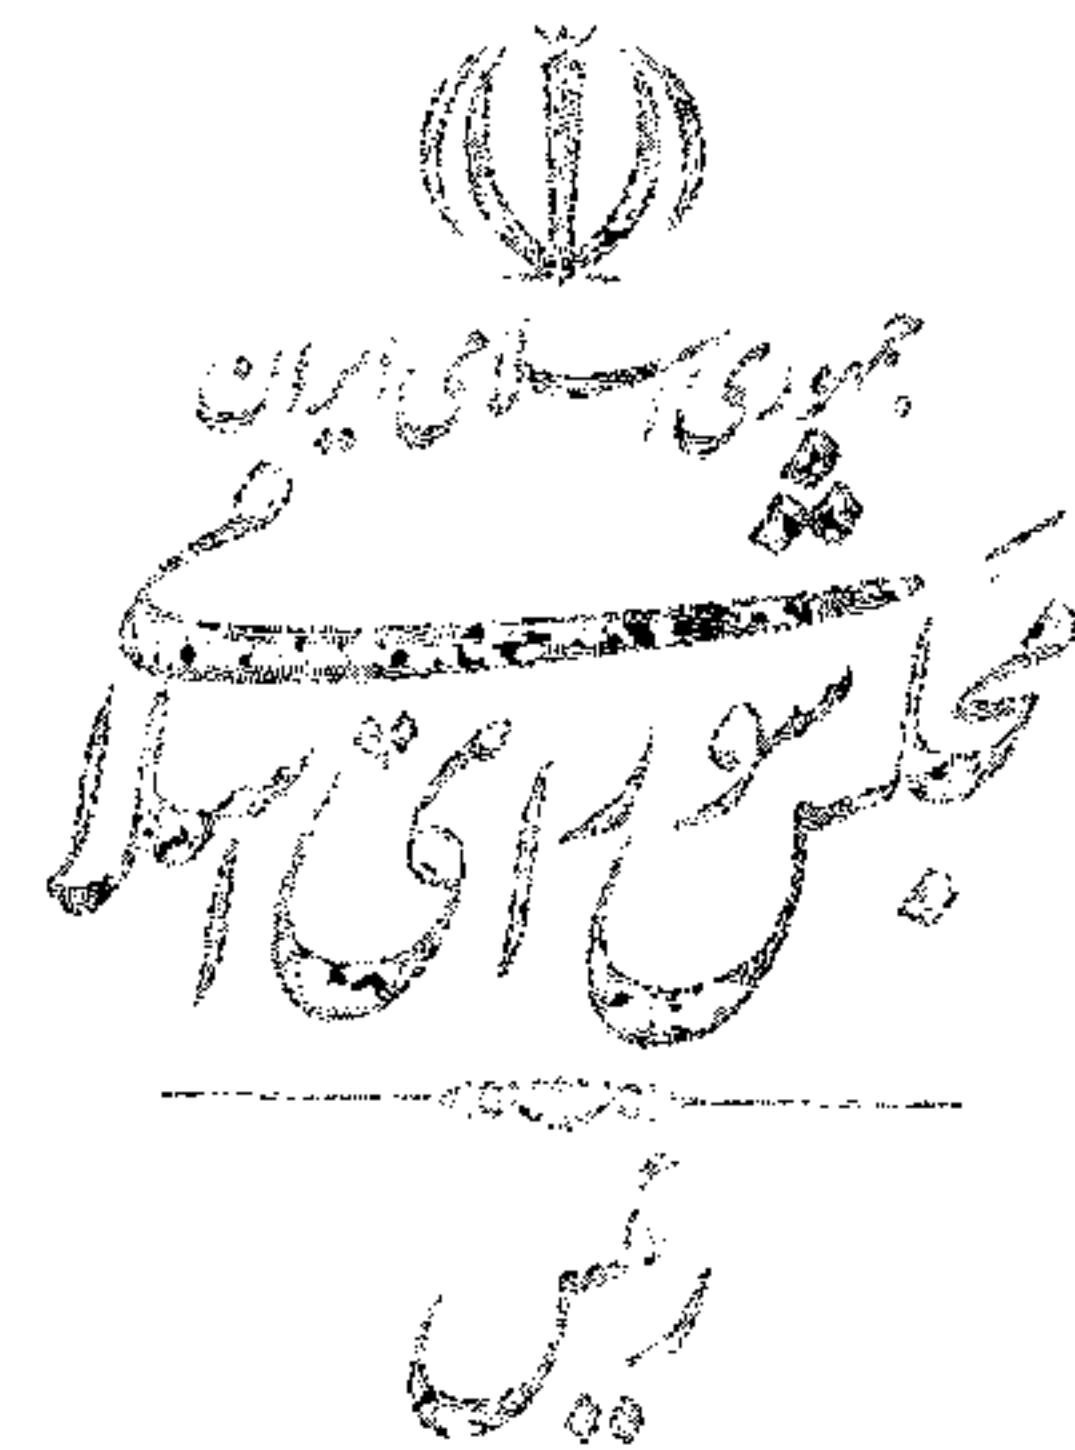 جمهوری اسلامی ایران
مجلس شورای اسلامی
رئیس